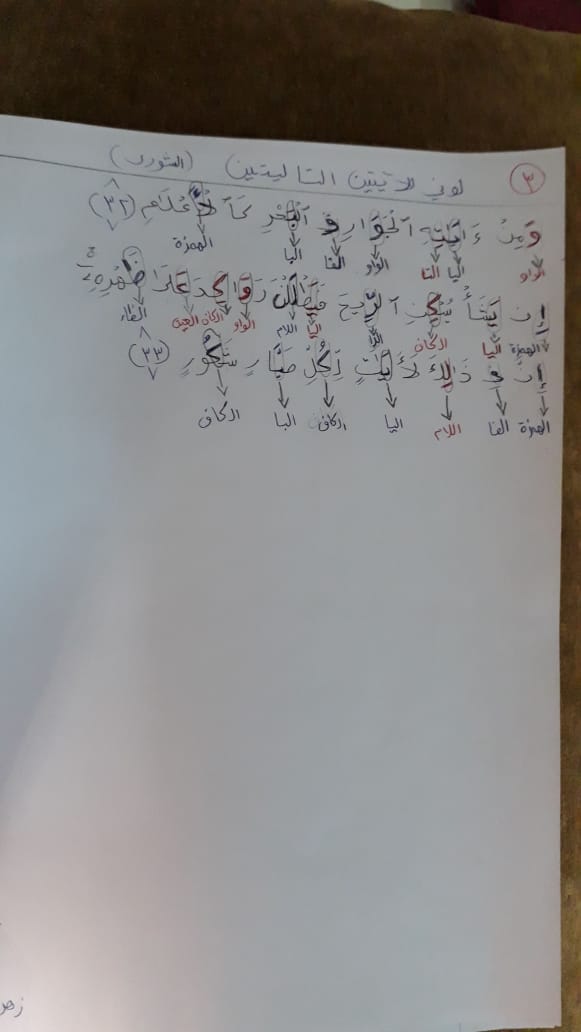 ٣
لوني الآيتين التاليتين (الشورى)
وَمِنْ ءَايَٰتِهِ ٱلْجَوَارِ فِى ٱلْبَحْرِ كَٱلْأَعْلَامِ (٣٢)
الواو اليا التا الواو الفا البا الهمزة
إِن يَشَأْ يُسْكِنِ ٱلرِّيحَ فَيَظْلَلْنَ رَوَاكِدَ عَلَىٰ ظَهْرِهِ
الهمزة اليا الكاف اليا اللام الواو الكاف العين الظاء
إِنَّ فِى ذَٰلِكَ لَأَيَٰتٍ لِّكُلِّ صَبَّارٍ شَكُورٍ (٣٣)
الهمزة الفا اللام اليا الكاف البا الكاف